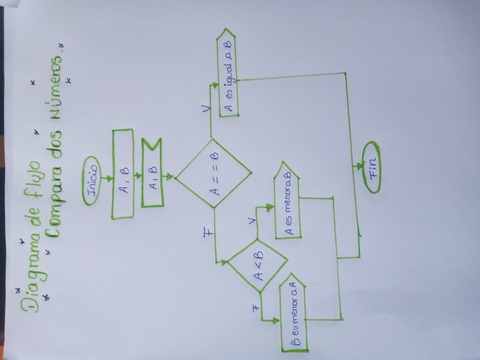 Diagrama de flujo
Compara dos Números.
Inicio
A, B
A, B
A == B
F
V
A es igual a B
A < B
F
V
B es menor a A
A es menor a B
Fin